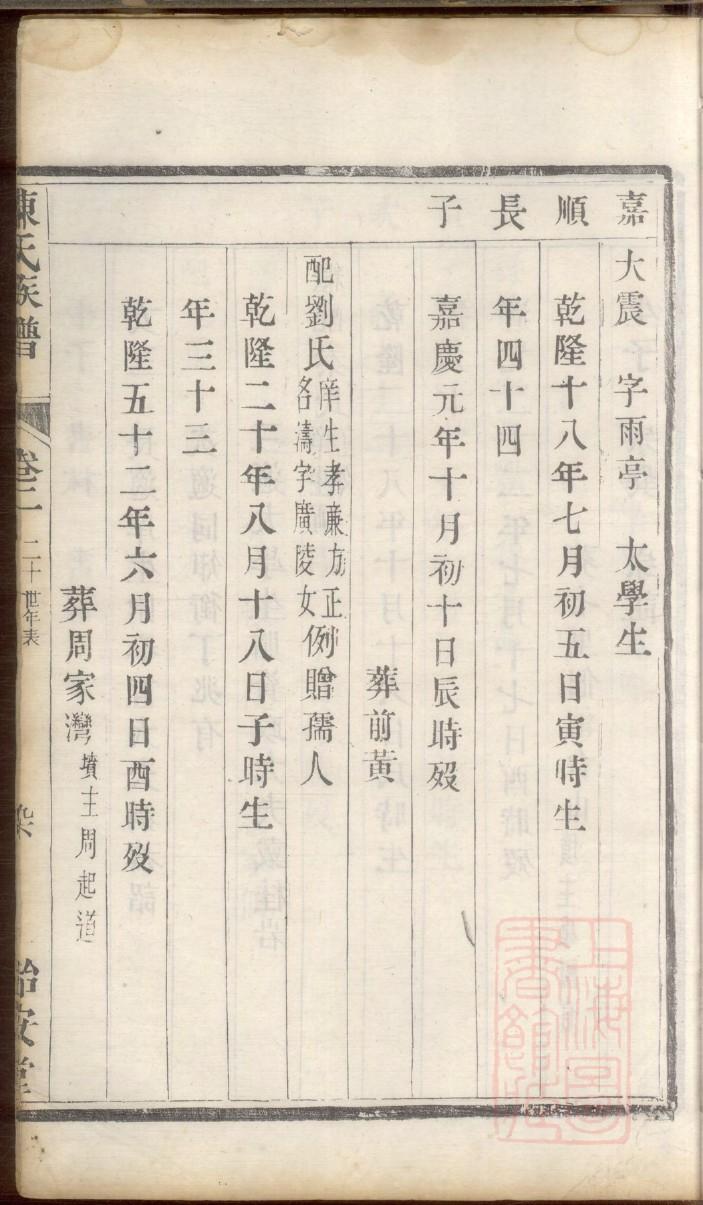 嘉順長子
大震　字雨亭　太學生
乾隆十八年七月初五日寅時生
年四十四
嘉慶元年十月初十日辰時殁
葬前黃
配劉氏庠生孝廉方正名濤字廣陵女例贈孺人
乾隆二十年八月十八日子時生
年三十三
乾隆五十二年六月初四日酉時殁
葬周家灣墳主周起道
陳氏族譜　卷二　二十世年表　染　怡安堂
上海圖書館藏